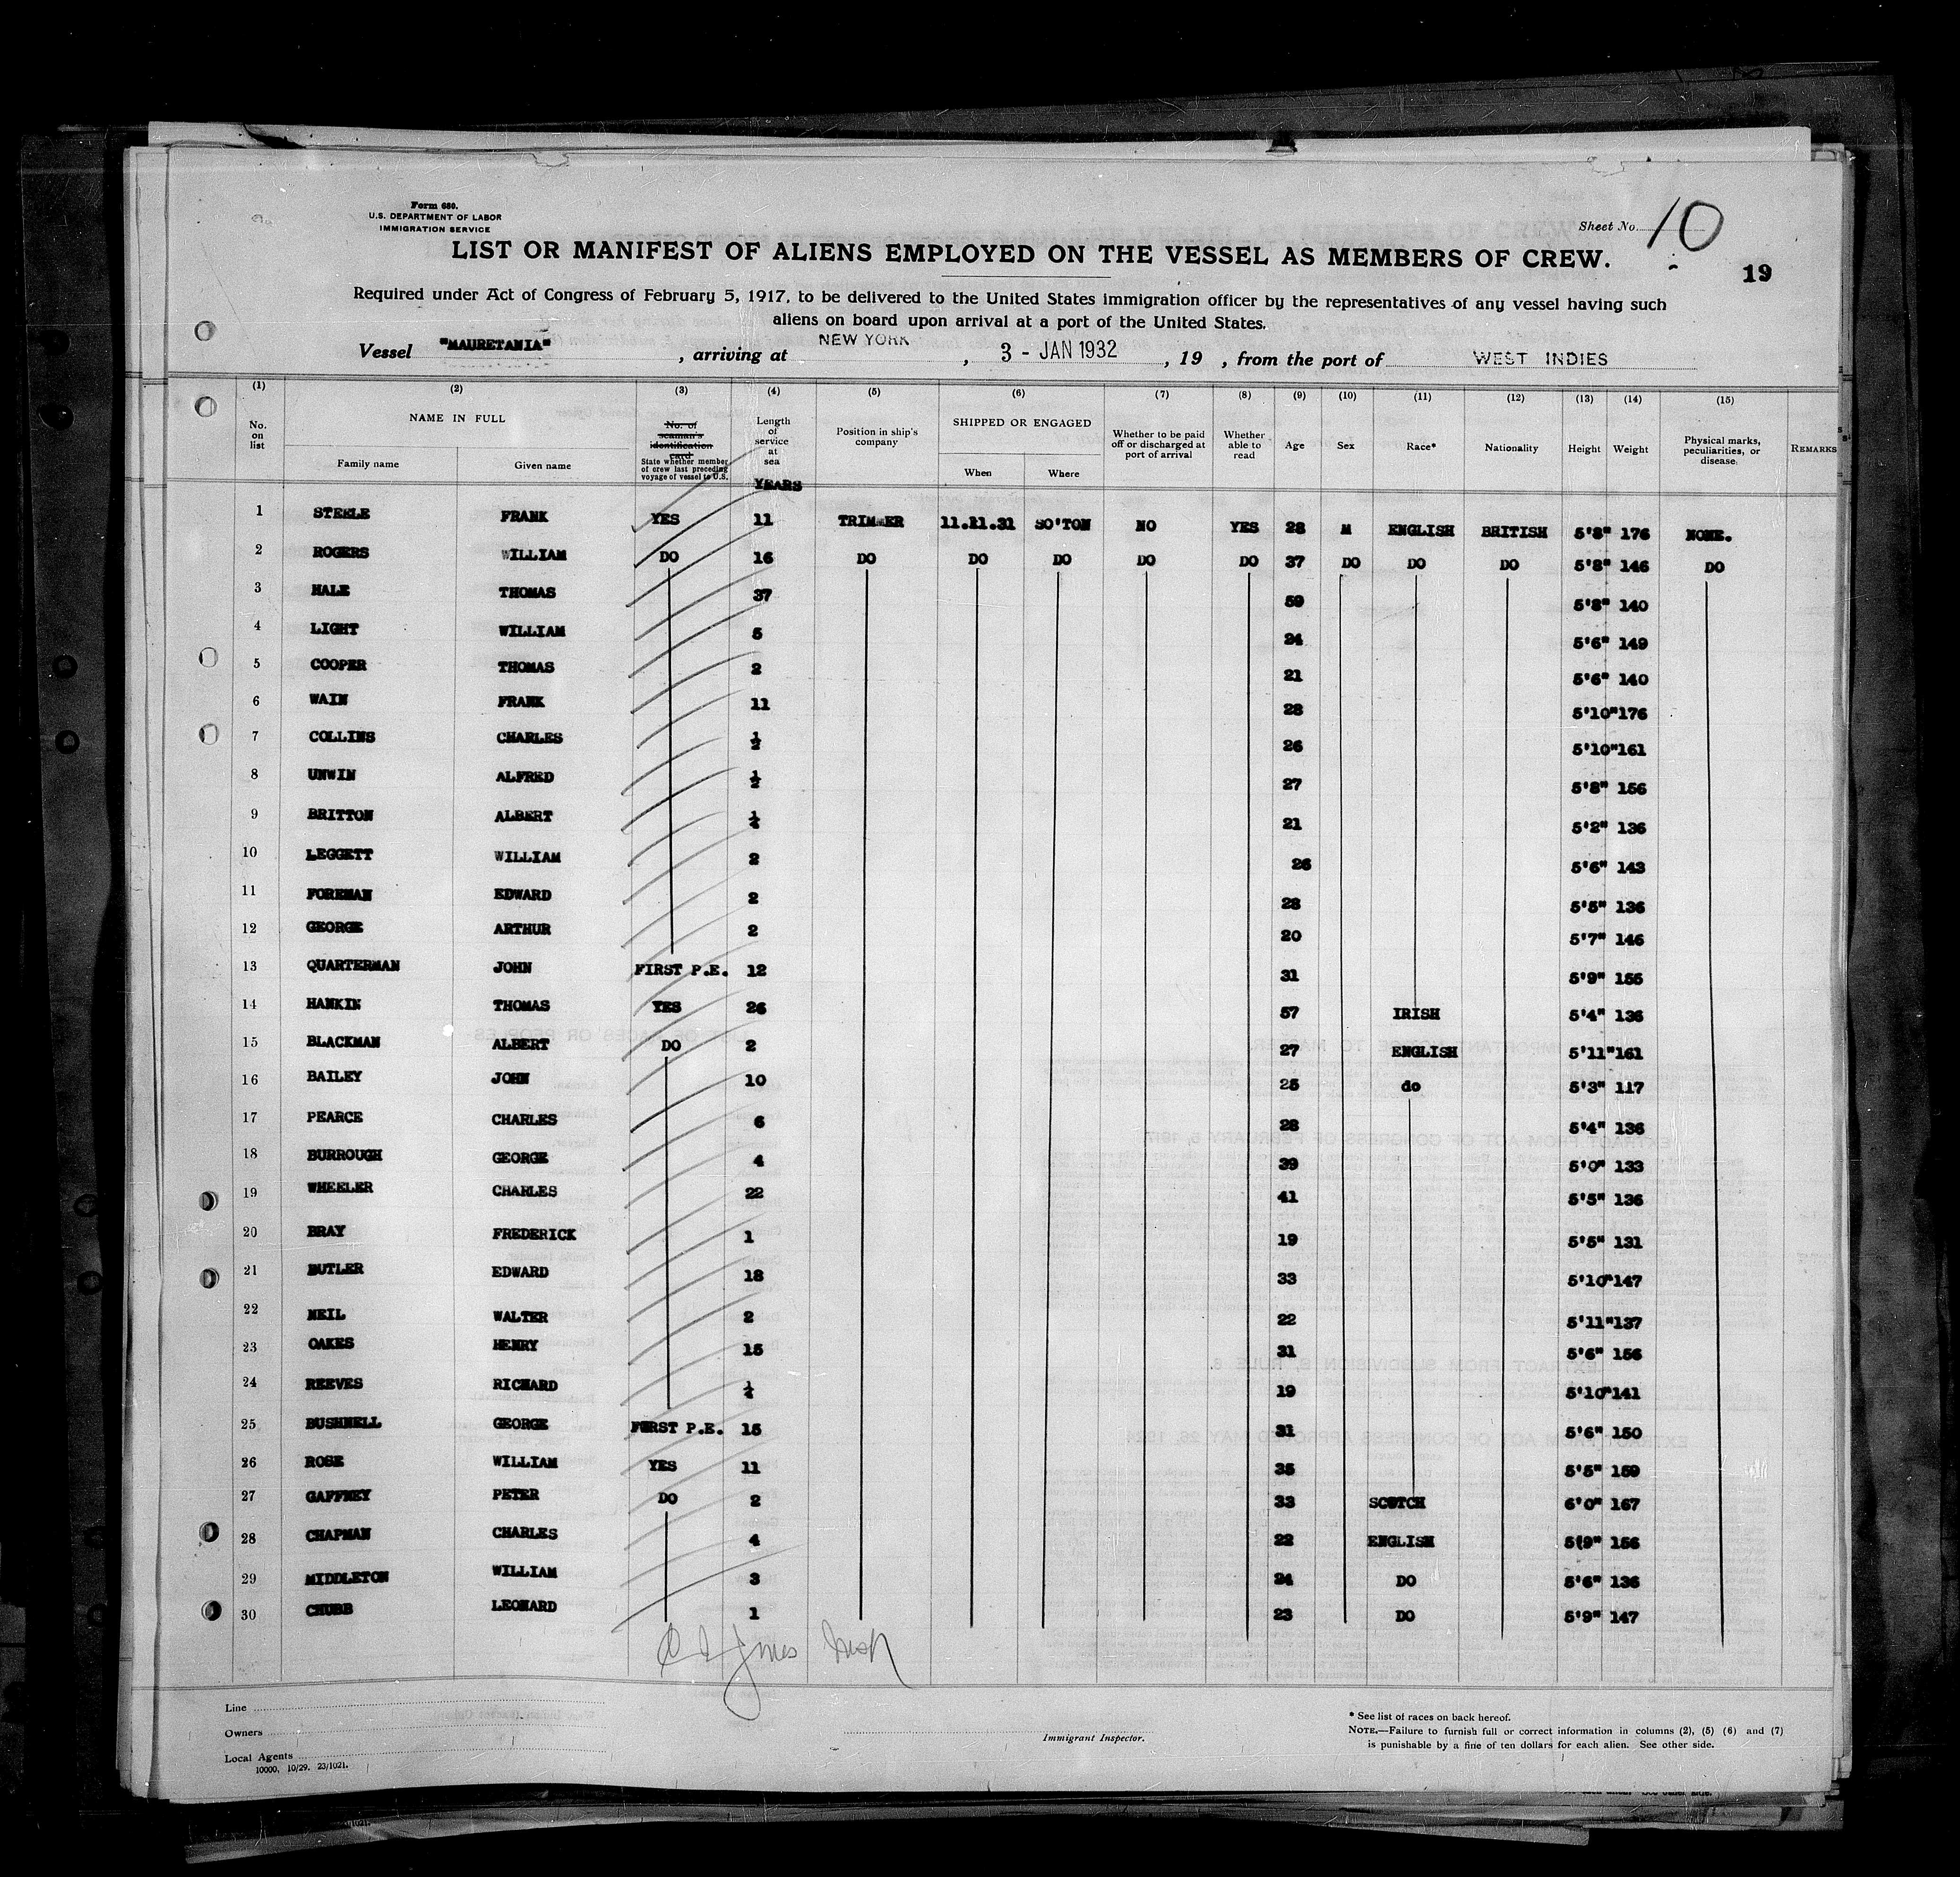 Form 680.
U.S. DEPARTMENT OF LABOR
IMMIGRATION SERVICE
Sheet No. 10
LIST OR MANIFEST OF ALIENS EMPLOYED ON THE VESSEL AS MEMBERS OF CREW.
19
Required under Act of Congress of February 5, 1917, to be delivered to the United States immigration officer by the representatives of any vessel having such
aliens on board upon arrival at a port of the United States.
Vessel "MAURETANIA", arriving at NEW YORK, 3 - JAN 1932, 19 , from the port of WEST INDIES
(1) (2) (3) (4) (5) (6) (7) (8) (9) (10) (11) (12) (13) (14) (15)
No. on list NAME IN FULL Family name Given name No. of seaman's identification card State whether member of crew last preceding voyage of vessel to U.S. Length of service at sea YEARS Position in ship's company SHIPPED OR ENGAGED When Where Whether to be paid off or discharged at port of arrival Whether able to read Age Sex Race* Nationality Height Weight Physical marks, peculiarities, or disease. REMARKS
1 STEELE FRANK YES 11 TRIMMER 11.11.31 SO'TON NO YES 28 M ENGLISH BRITISH 5'8" 176 NONE.
2 ROGERS WILLIAM DO 16 DO DO DO DO DO 37 DO DO DO 5'8" 146 DO
3 HALE THOMAS 37 59 5'8" 140
4 LIGHT WILLIAM 5 24 5'6" 149
5 COOPER THOMAS 2 21 5'6" 140
6 WAIN FRANK 11 28 5'10" 176
7 COLLINS CHARLES ½ 26 5'10" 161
8 UNWIN ALFRED ½ 27 5'8" 156
9 BRITTON ALBERT ¼ 21 5'2" 136
10 LEGGETT WILLIAM 2 26 5'6" 143
11 FOREMAN EDWARD 2 28 5'5" 136
12 GEORGE ARTHUR 2 20 5'7" 146
13 QUARTERMAN JOHN FIRST P.E. 12 31 5'9" 156
14 HANKIN THOMAS YES 26 57 IRISH 5'4" 136
15 BLACKMAN ALBERT DO 2 27 ENGLISH 5'11" 161
16 BAILEY JOHN 10 25 do 5'3" 117
17 PEARCE CHARLES 6 28 5'4" 136
18 BURROUGH GEORGE 4 39 5'0" 133
19 WHEELER CHARLES 22 41 5'5" 136
20 BRAY FREDERICK 1 19 5'5" 131
21 BUTLER EDWARD 18 33 5'10" 147
22 NEIL WALTER 2 22 5'11" 137
23 OAKES HENRY 15 31 5'6" 156
24 REEVES RICHARD ¼ 19 5'10" 141
25 BUSHNELL GEORGE FIRST P.E. 15 31 5'6" 150
26 ROSE WILLIAM YES 11 35 5'5" 159
27 GAFFNEY PETER DO 2 33 SCOTCH 6'0" 167
28 CHAPMAN CHARLES 4 22 ENGLISH 5'9" 156
29 MIDDLETON WILLIAM 3 24 DO 5'6" 136
30 CHUBB LEONARD 1 23 DO 5'9" 147
Jones
Line
Owners
Local Agents
10000. 10/29. 23/1021.
Immigrant Inspector.
* See list of races on back hereof.
NOTE.—Failure to furnish full or correct information in columns (2), (5) (6) and (7)
is punishable by a fine of ten dollars for each alien. See other side.